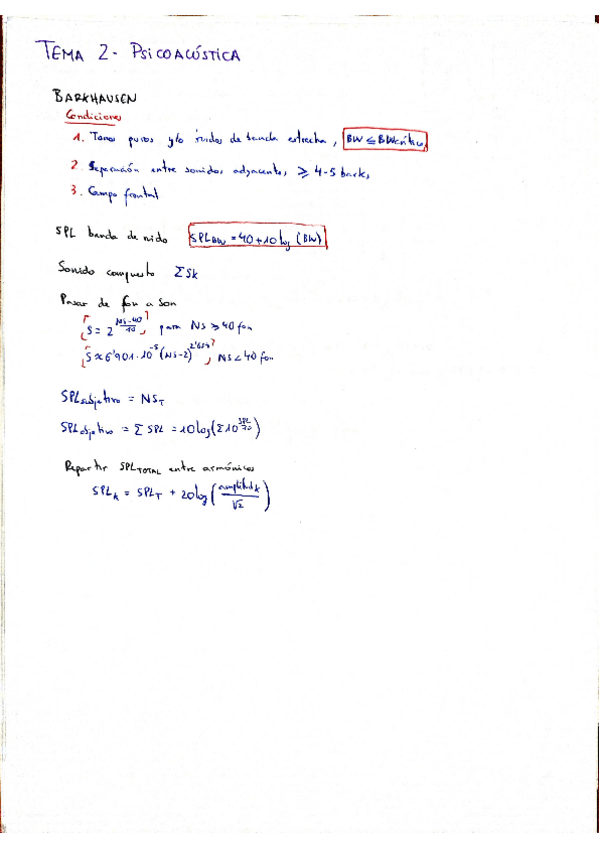 TEMA 2 - PSICOACÚSTICA
BARKHAUSEN
Condiciones
1. Tonos puros y/o ruidos de banda estrecha, BW ≤ BWcrítico
2. Separación entre sonidos adyacentes, ≥ 4-5 barks
3. Campo frontal
SPL banda de ruido SPL_BW = 40+10 log (BW)
Sonido compuesto Σ Sk
Pasar de fon a son
S = 2^((NS-40)/10) para NS ≥ 40 fon
S ≈ 6'901·10^-5 (NS-2)^2'659, NS < 40 fon
SPLsubjetivo = NS_T
SPLobjetivo = Σ SPL = 10 log (Σ 10^(SPL/10))
Repartir SPL_TOTAL entre armónicos
SPL_k = SPL_T + 20 log (amplitud_k/√2)